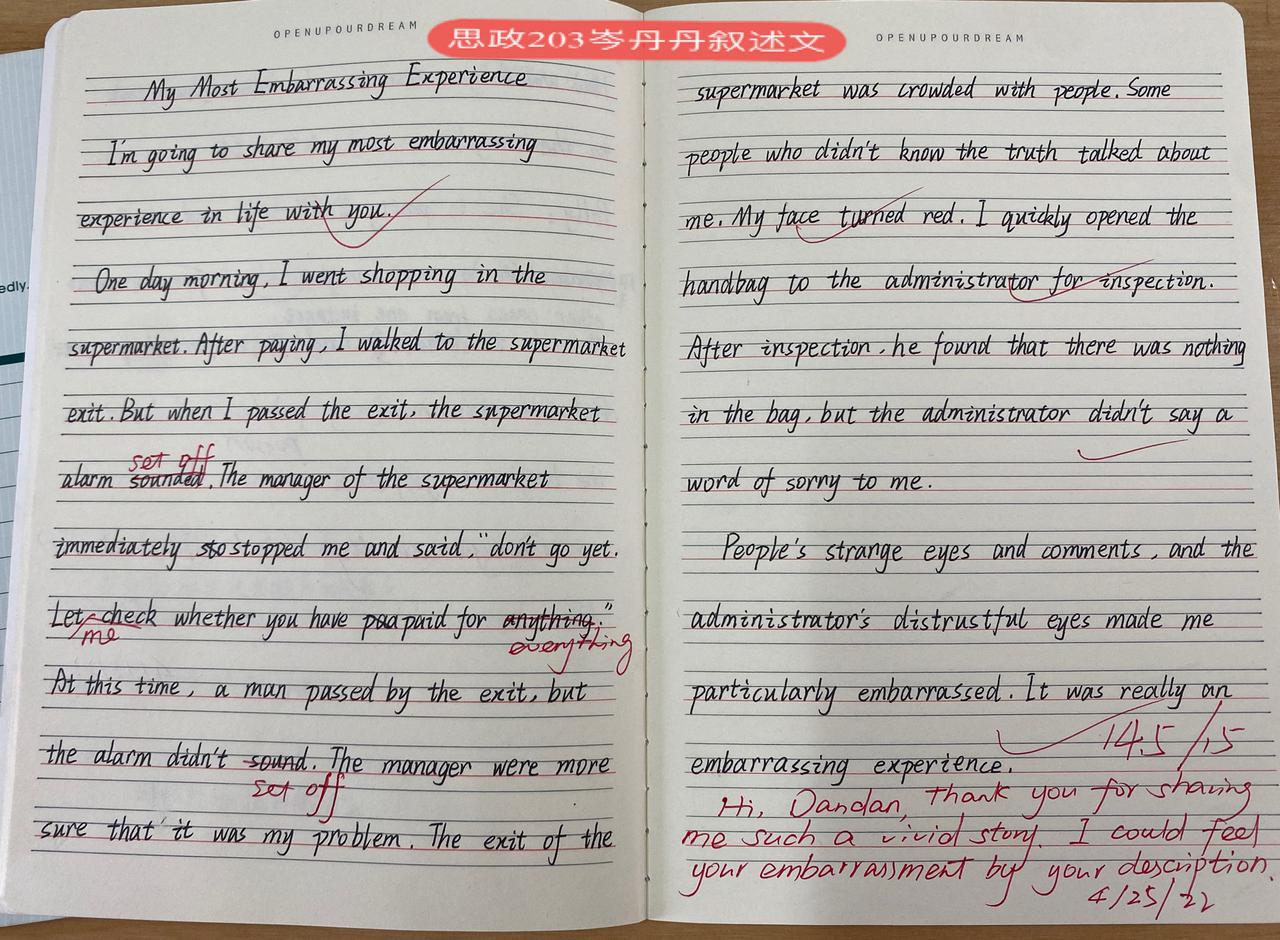 OPENUPOURDREAM
思政203岑丹丹叙述文
OPENUPOURDREAM
My Most Embarrassing Experience
I'm going to share my most embarrassing
experience in life with you.
One day morning, I went shopping in the
supermarket. After paying, I walked to the supermarket
exit. But when I passed the exit, the supermarket
set off
alarm sounded. The manager of the supermarket
immediately sto stopped me and said, "don't go yet.
Let check whether you have paa paid for anything."
me everything
At this time, a man passed by the exit, but
the alarm didn't sound. The manager were more
set off
sure that it was my problem. The exit of the
supermarket was crowded with people. Some
people who didn't know the truth talked about
me. My face turned red. I quickly opened the
handbag to the administrator for inspection.
After inspection, he found that there was nothing
in the bag, but the administrator didn't say a
word of sorry to me.
People's strange eyes and comments, and the
administrator's distrustful eyes made me
particularly embarrassed. It was really an
14.5/15
embarrassing experience.
Hi, Dandan, thank you for sharing
me such a vivid story. I could feel
your embarrassment by your description.
4/25/22
edly.